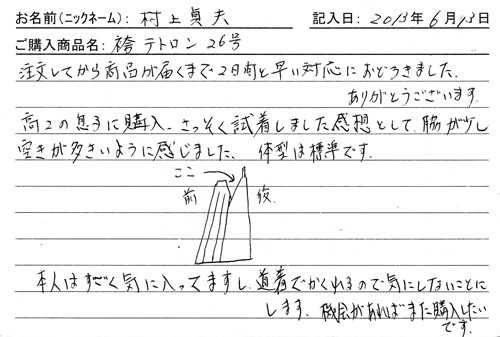 お名前(ニックネーム): 村上貞夫 記入日: 2013年6月13日
ご購入商品名: 袴 テトロン 26号
注文してから商品が届くまで2日間と早い対応におどろきました。
ありがとうございます。
高2の息子に購入。さっそく試着しました感想として、脇が少し
空きが多きいように感じました。体型は標準です。
ここ
前 後
本人はすごく気に入ってますし、道着でかくれるので気にしないことに
します。機会があればまた購入したい
です。